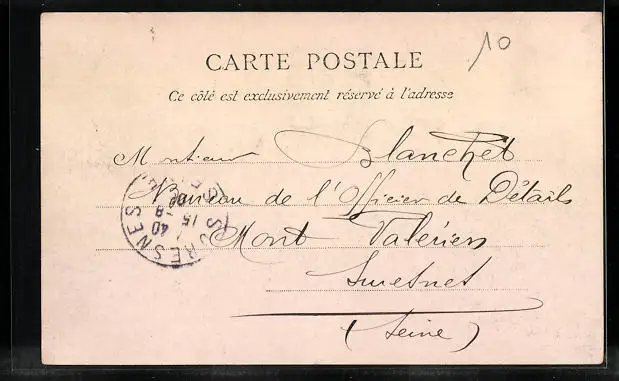 10
CARTE POSTALE
Ce côté est exclusivement réservé à l'adresse
Monsieur Blanchet
Bureau de l'Officier de Détails
Mont Valérien
Suresnes
(Seine)
SURESNES
15